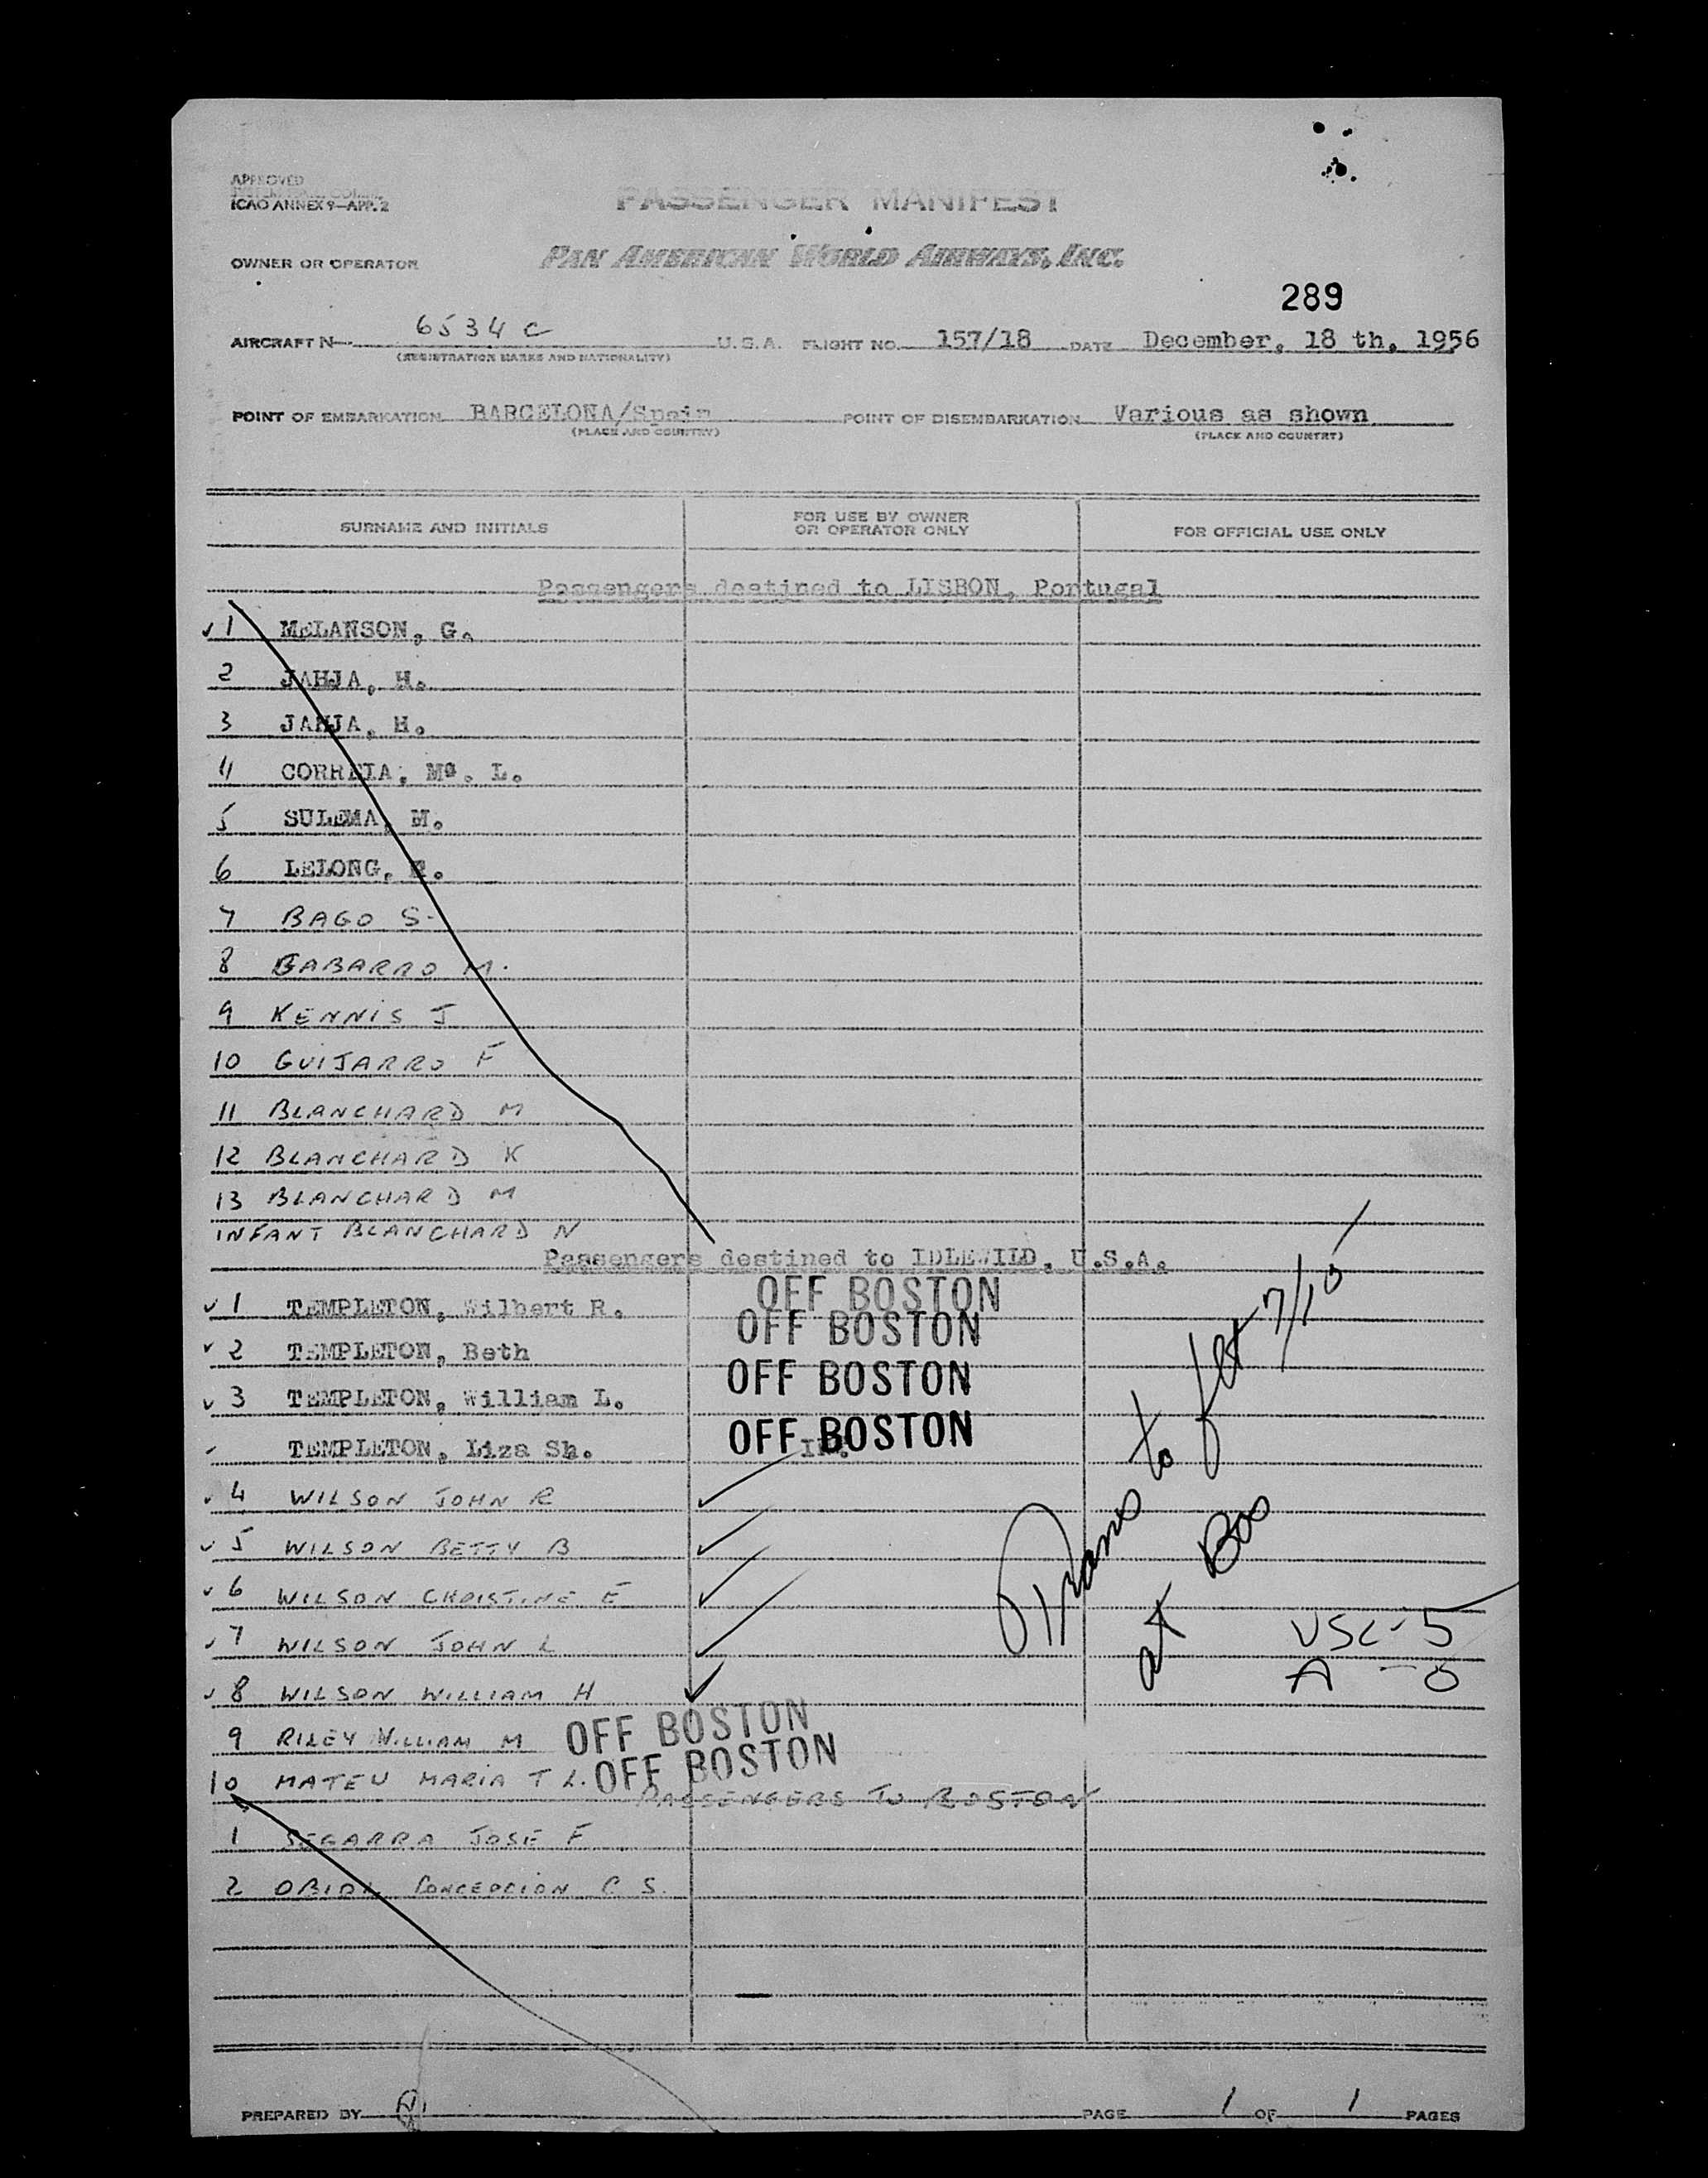 APPROVED
ICAO ANNEX 9—APP. 2
PASSENGER MANIFEST
OWNER OR OPERATOR PAN AMERICAN WORLD AIRWAYS, INC.
289
AIRCRAFT N— 6534 C U.S.A. FLIGHT NO. 157/18 DATE December, 18 th, 1956
(REGISTRATION MARKS AND NATIONALITY)
POINT OF EMBARKATION BARCELONA/Spain POINT OF DISEMBARKATION Various as shown
(PLACE AND COUNTRY) (PLACE AND COUNTRY)
SURNAME AND INITIALS FOR USE BY OWNER OR OPERATOR ONLY FOR OFFICIAL USE ONLY
Passengers destined to LISBON, Portugal
1 MELANSON, G.
2 JAHJA, H.
3 JAHJA, H.
4 CORREIA, Mª. L.
5 SULEMA, M.
6 LELONG,
7 BAGO S.
8 GABARRO M.
9 KENNIS J
10 GUIJARRO F
11 BLANCHARD M
12 BLANCHARD K
13 BLANCHARD M
INFANT BLANCHARD N
Passengers destined to IDLEWILD, U.S.A.
1 TEMPLETON, Wilbert R. OFF BOSTON
OFF BOSTON
2 TEMPLETON, Beth
OFF BOSTON
3 TEMPLETON, William L.
TEMPLETON, Liza Sh. OFF BOSTON
4 WILSON JOHN R
5 WILSON BETTY B
6 WILSON CHRISTINE E
7 WILSON JOHN L
8 WILSON WILLIAM H
Trans to flt 7/10
at Bos
USC-5
A-0
9 RILEY WILLIAM M OFF BOSTON
10 MATEU MARIA T L. OFF BOSTON
PASSENGERS TO BOSTON
1 SEGARRA JOSE F
2 CONCEPCION C S.
PREPARED BY PAGE 1 OF 1 PAGES